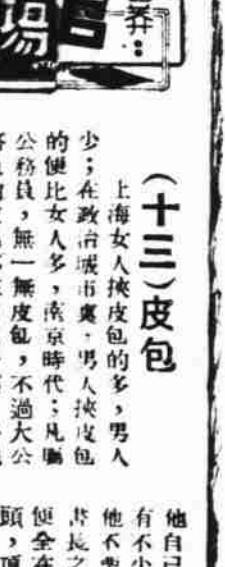 （十三）皮包
上海女人挾皮包的多，男人
少；在政治城市裏，男人挾皮包
的便比女人多，南京時代；凡屬
公務員，無一無皮包，不過大公
他自己
有不少
他不
書長之
便全在
頭，頂